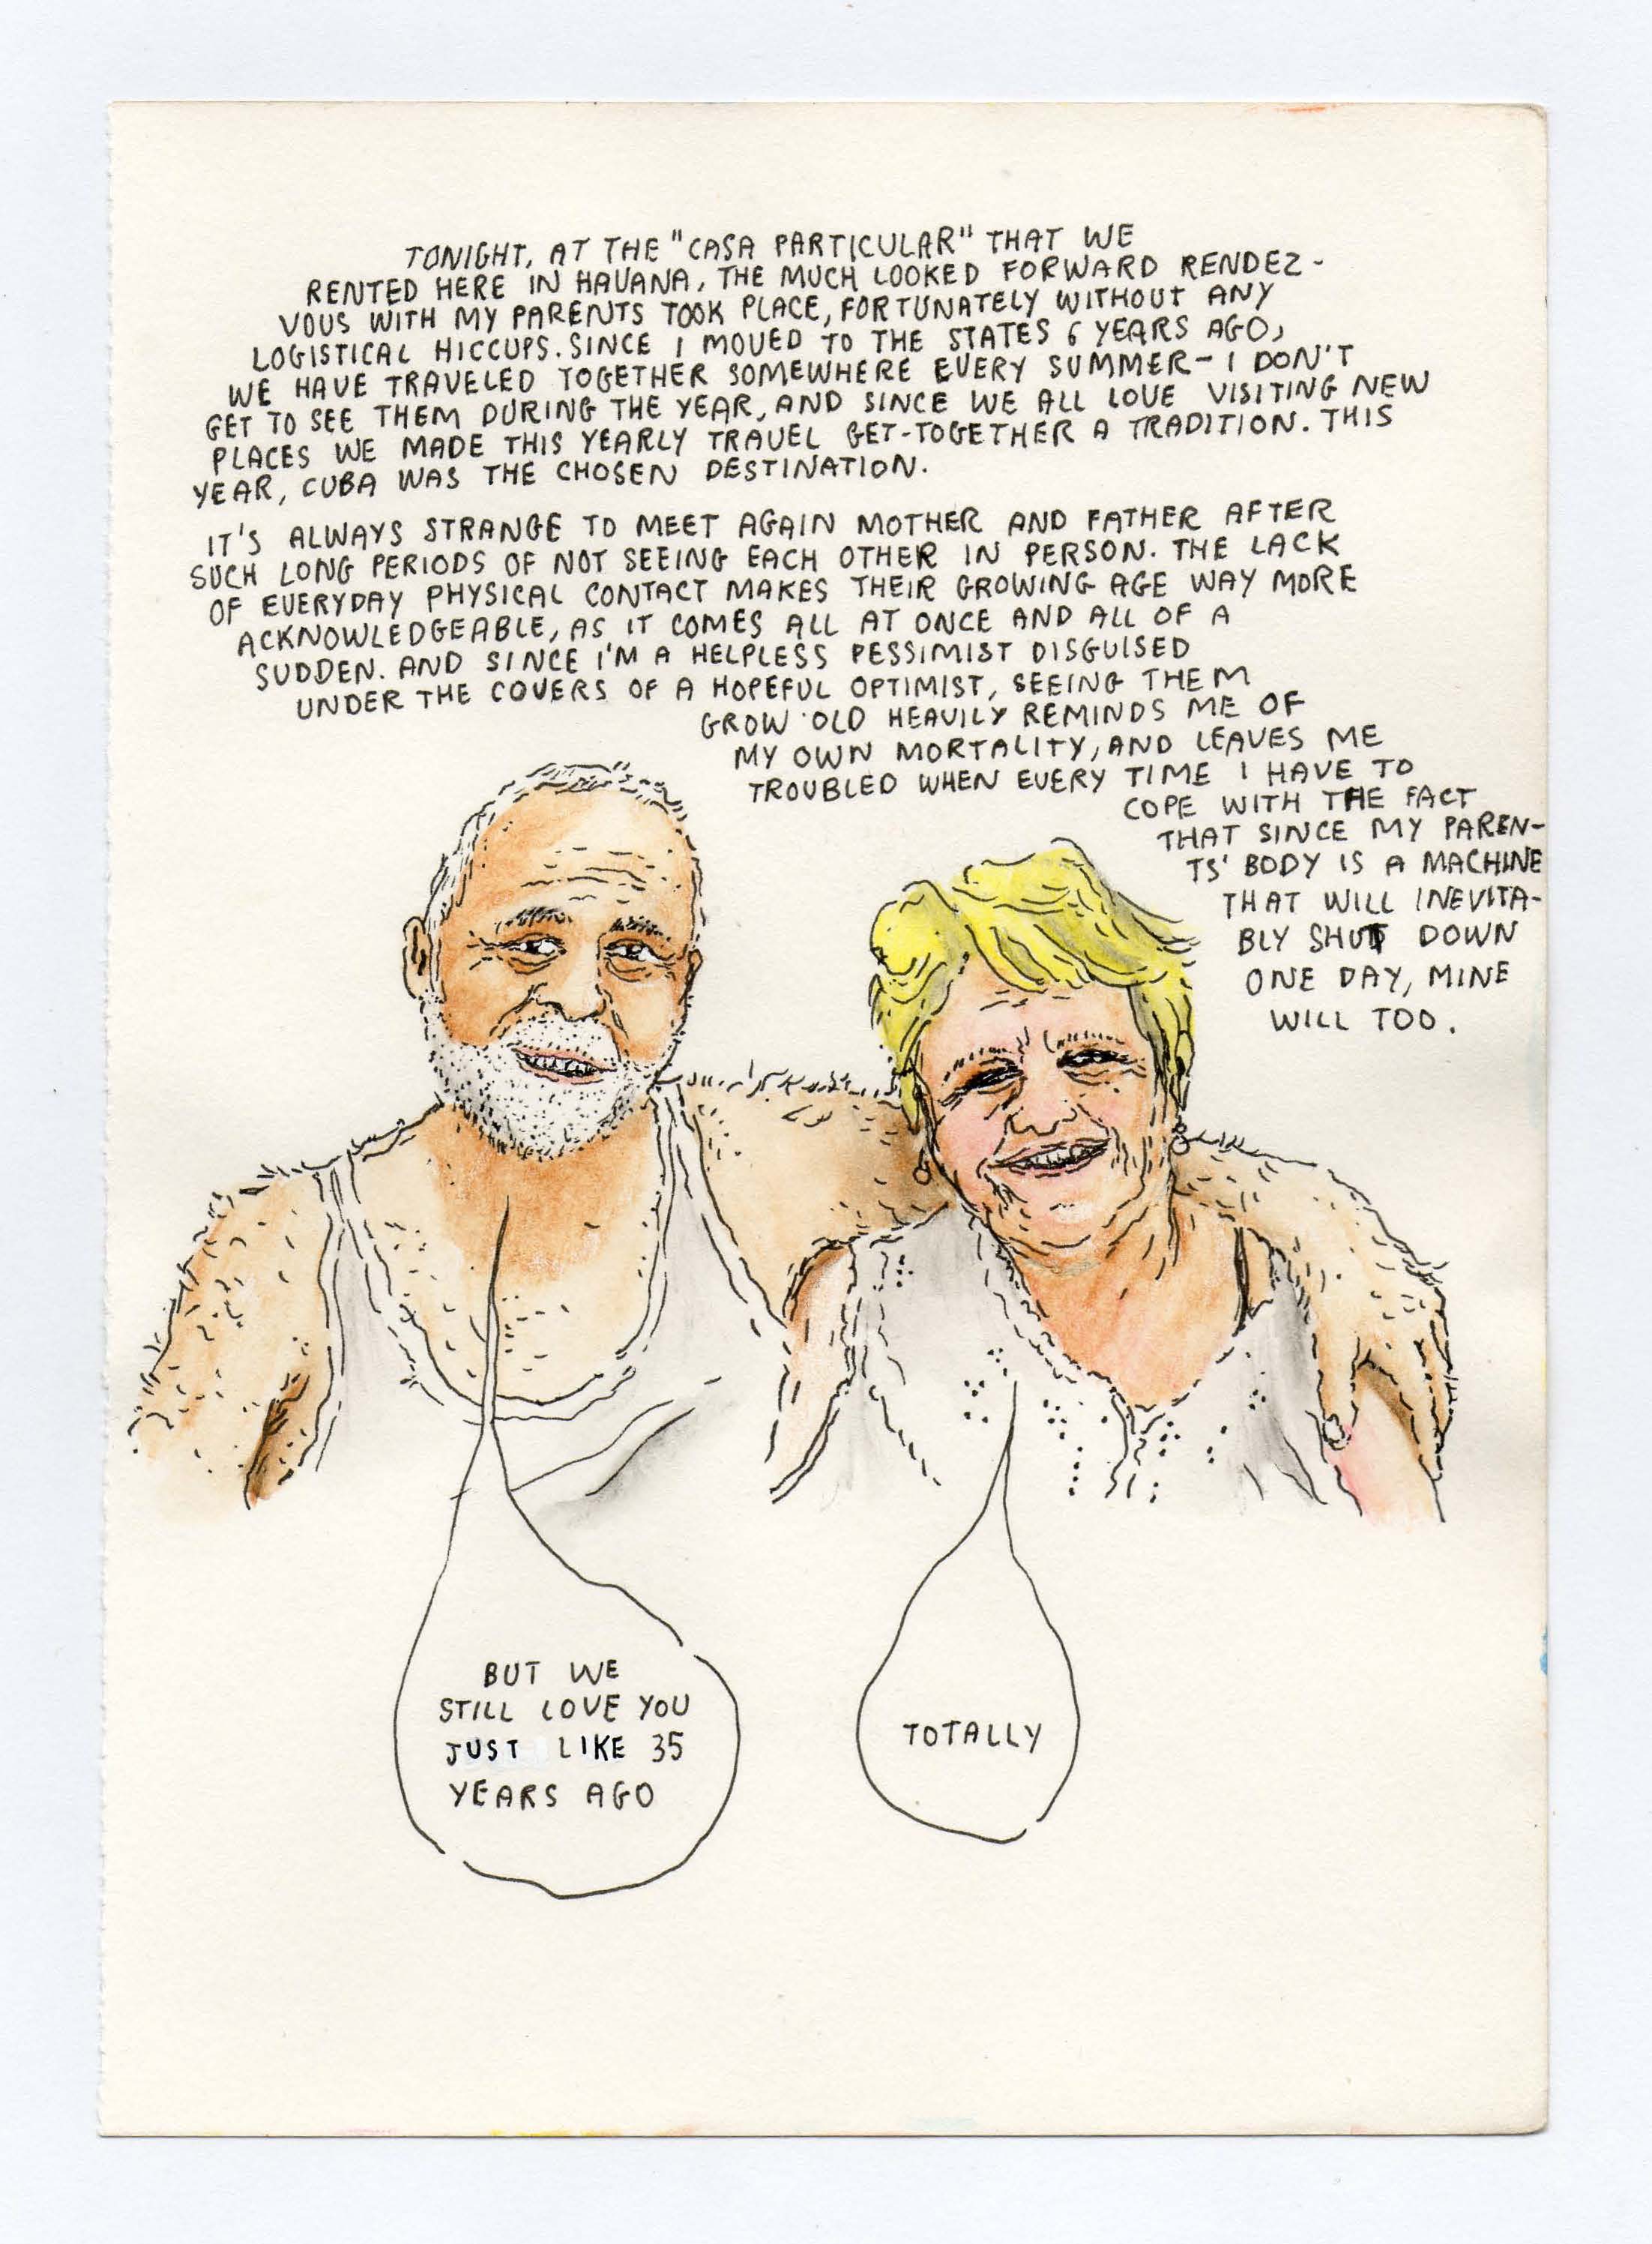 TONIGHT, AT THE "CASA PARTICULAR" THAT WE
RENTED HERE IN HAVANA, THE MUCH LOOKED FORWARD RENDEZ-
VOUS WITH MY PARENTS TOOK PLACE, FORTUNATELY WITHOUT ANY
LOGISTICAL HICCUPS. SINCE I MOVED TO THE STATES 6 YEARS AGO,
WE HAVE TRAVELED TOGETHER SOMEWHERE EVERY SUMMER - I DON'T
GET TO SEE THEM DURING THE YEAR, AND SINCE WE ALL LOVE VISITING NEW
PLACES WE MADE THIS YEARLY TRAVEL GET-TOGETHER A TRADITION. THIS
YEAR, CUBA WAS THE CHOSEN DESTINATION.
IT'S ALWAYS STRANGE TO MEET AGAIN MOTHER AND FATHER AFTER
SUCH LONG PERIODS OF NOT SEEING EACH OTHER IN PERSON. THE LACK
OF EVERYDAY PHYSICAL CONTACT MAKES THEIR GROWING AGE WAY MORE
ACKNOWLEDGEABLE, AS IT COMES ALL AT ONCE AND ALL OF A
SUDDEN. AND SINCE I'M A HELPLESS PESSIMIST DISGUISED
UNDER THE COVERS OF A HOPEFUL OPTIMIST, SEEING THEM
GROW OLD HEAVILY REMINDS ME OF
MY OWN MORTALITY, AND LEAVES ME
TROUBLED WHEN EVERY TIME I HAVE TO
COPE WITH THE FACT
THAT SINCE MY PAREN-
TS' BODY IS A MACHINE
THAT WILL INEVITA-
BLY SHUT DOWN
ONE DAY, MINE
WILL TOO.
BUT WE
STILL LOVE YOU
JUST LIKE 35
YEARS AGO
TOTALLY